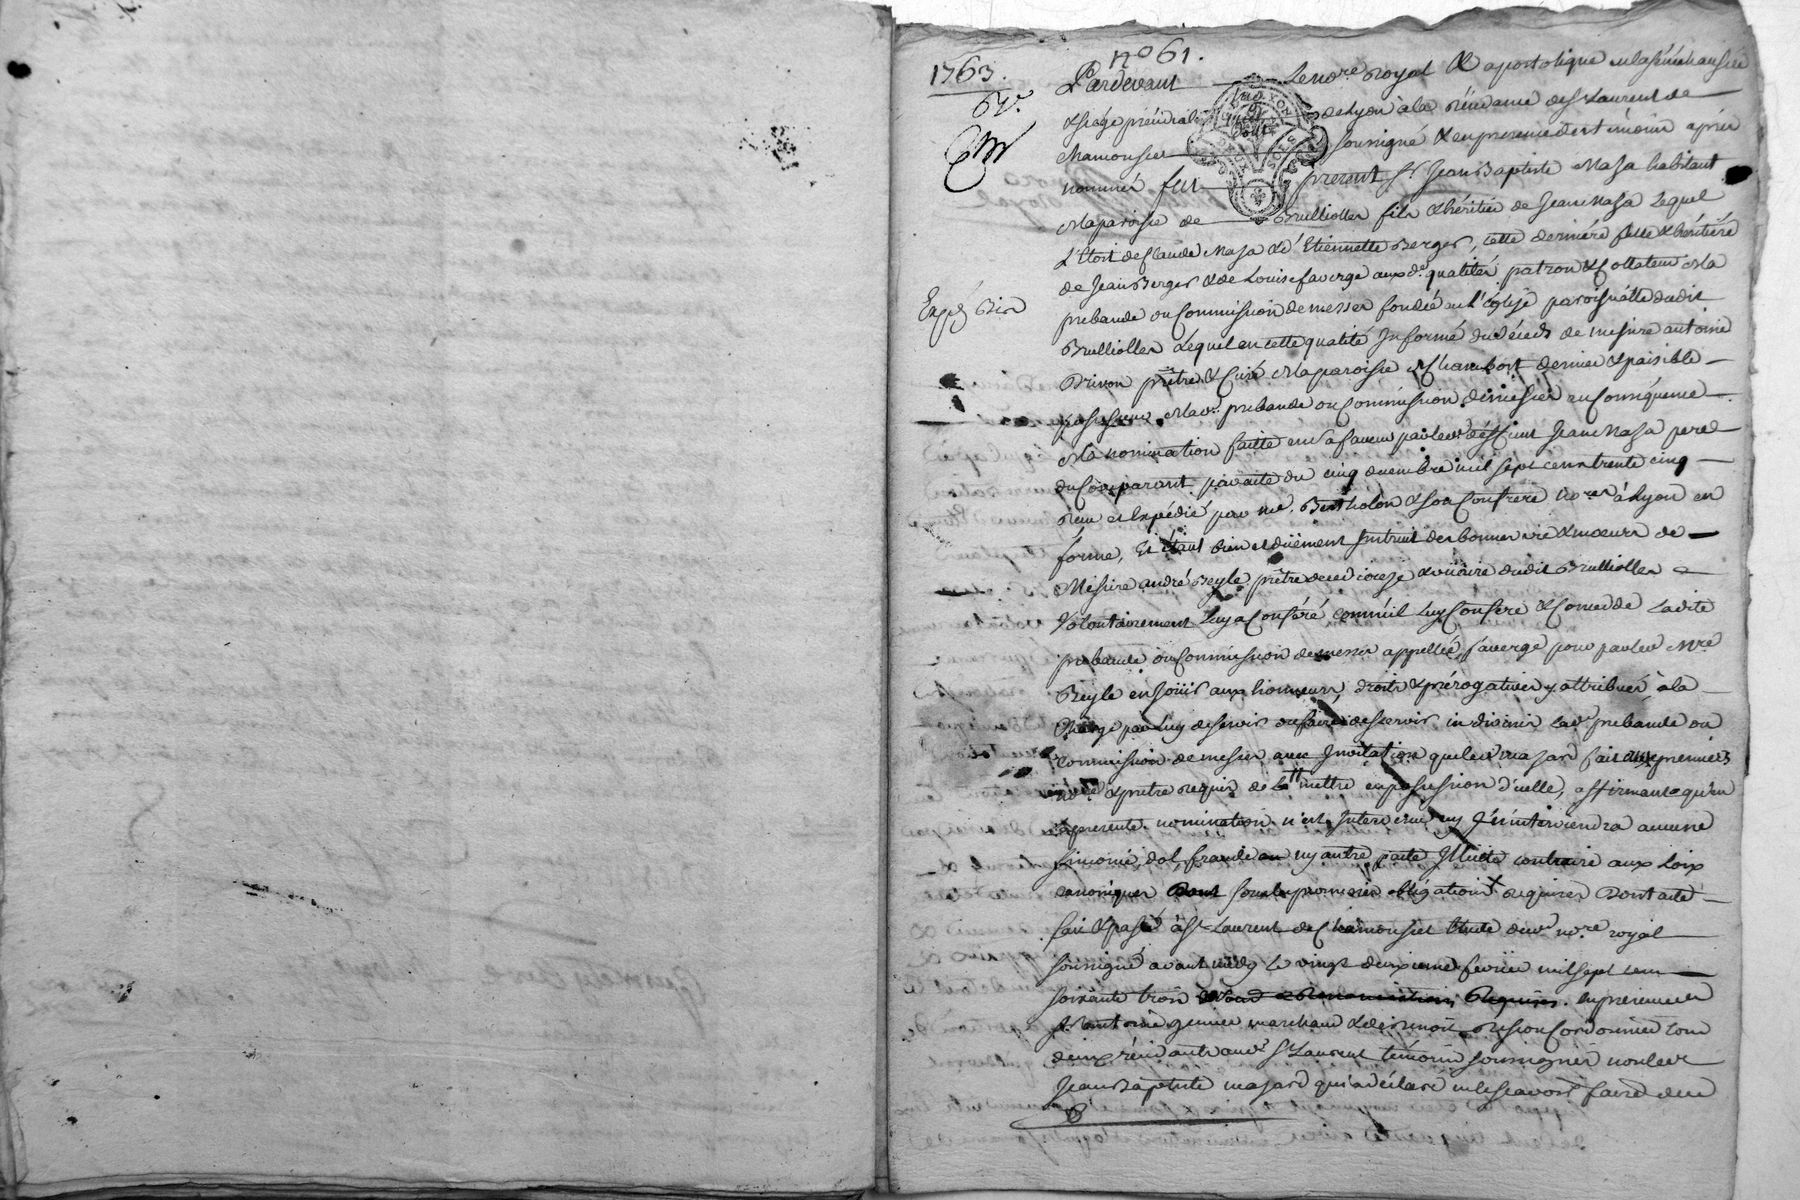 1763.
n° 61.
Pardevant Le no.re Royal & apostolique en la sénéchaussée
& siége présidial de Lyon à la résidance de St Laurent de
Chamousset soussigné & en presence des témoins après
nommés fut present Sr. Jean Baptiste Maza habitant
en la paroisse de Brulliolles fils & héritier de Jean Maza Lequel
L'étoit de Claude Maza & d'Etiennette Berger, cette derniére fille & héritière
de Jean Berger & de Louise faverge aux d. qualités patron & Collateur de la
prebande ou Commission de messes fondée en l'église paroissialle dudit
Expéd.
Brulliolles Lequel en cette qualité Informé du décéds de messire antoine
prêtre & Curé de la paroisse de Chambost dernier & paisible
possesseur de lad. prebande ou Commission de messes en Conséquence
de la nomination faitte en sa faveur par led. déffunt Jean Maza pere
du Comparant par acte du cinq decembre mil sept cens trente cinq
reçu et Expédié par Me. Bertholon & son Confrere no.res à Lyon en
forme, Et Etant bien et düement Instruit des bonnes vie & mœurs de
Messire andré Beyle prêtre de ce diocèze & vicaire dudit Brulliolles
Volontairement Luy a Conféré comme il Luy Confere & Concede Ladite
prebande ou Commission de messes appellée faverge pour par led. Mre
Beyle en Joüir aux honneurs, droits & prérogatives y attribués, à la
Charge par Luy de servir ou faire desservir les divins lad. prebande ou
commission de messes avec Invitation que led. Mazard fait au premier
no.re & prêtre requis de le mettre en possession d'icelle, affirmant qu'en
la presente nomination n'est Intervenu ny n'interviendra aucune
simonie, dol, fraude ny autre pacte Illicite contraire aux Loix
canoniques sous les promesses obligations requises Dont acte
fait & passé à St Laurent de Chamousset Etude dud. no.re royal
soussigné avant midy Le vingt deuxieme fevrier mil sept cens
soixante trois en presence de
Sr antoine marchand & de Benoit cordonnier tous
deux résidants aud. St Laurent témoins soussignés non led.
Jean Baptiste Mazard qui a déclaré ne le sçavoir faire de ce